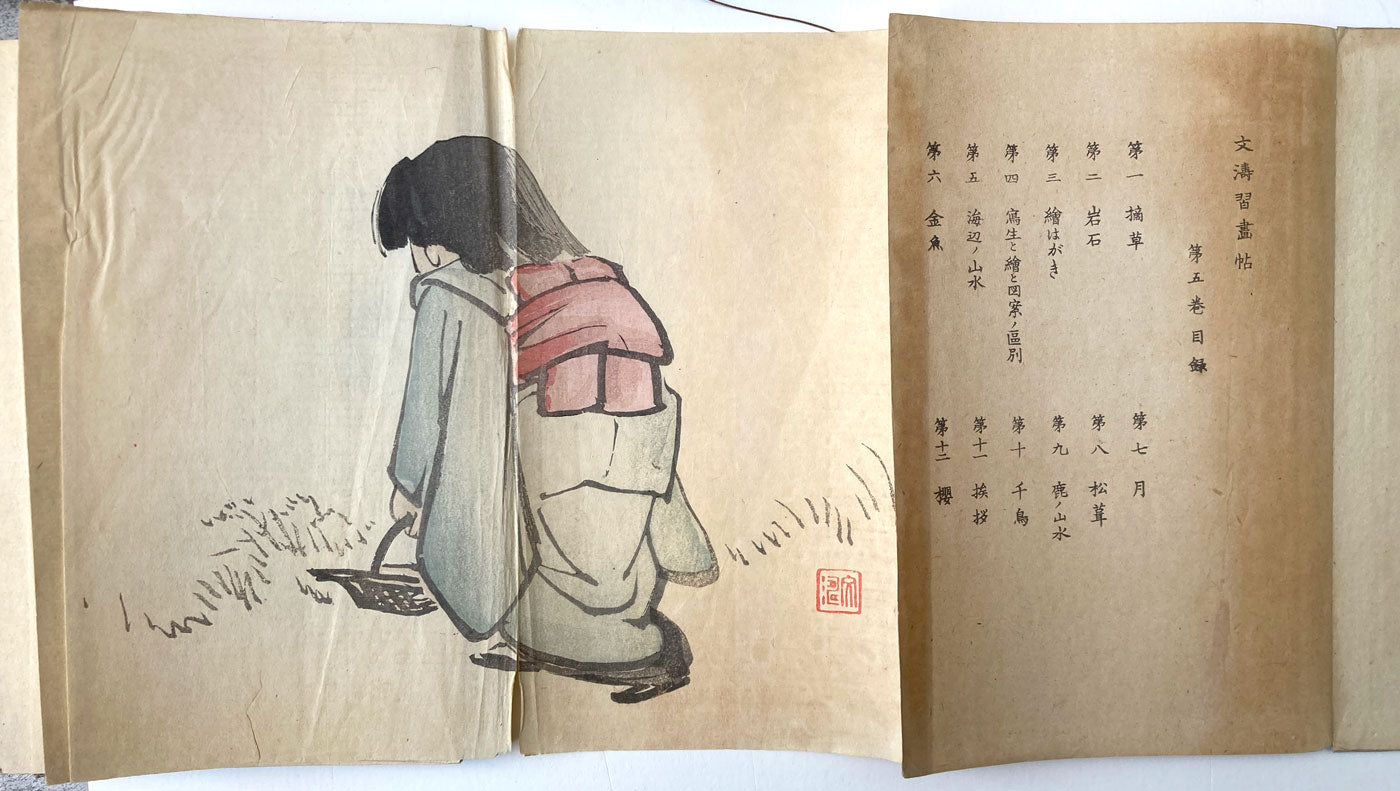 文濤習畫帖
第五巻目録
第一 摘草
第二 岩石
第三 繪はがき
第四 寫生と繪と図案ノ區別
第五 海辺ノ山水
第六 金魚
第七 月
第八 松茸
第九 鹿ノ山水
第十 千鳥
第十一 挨拶
第十二 櫻